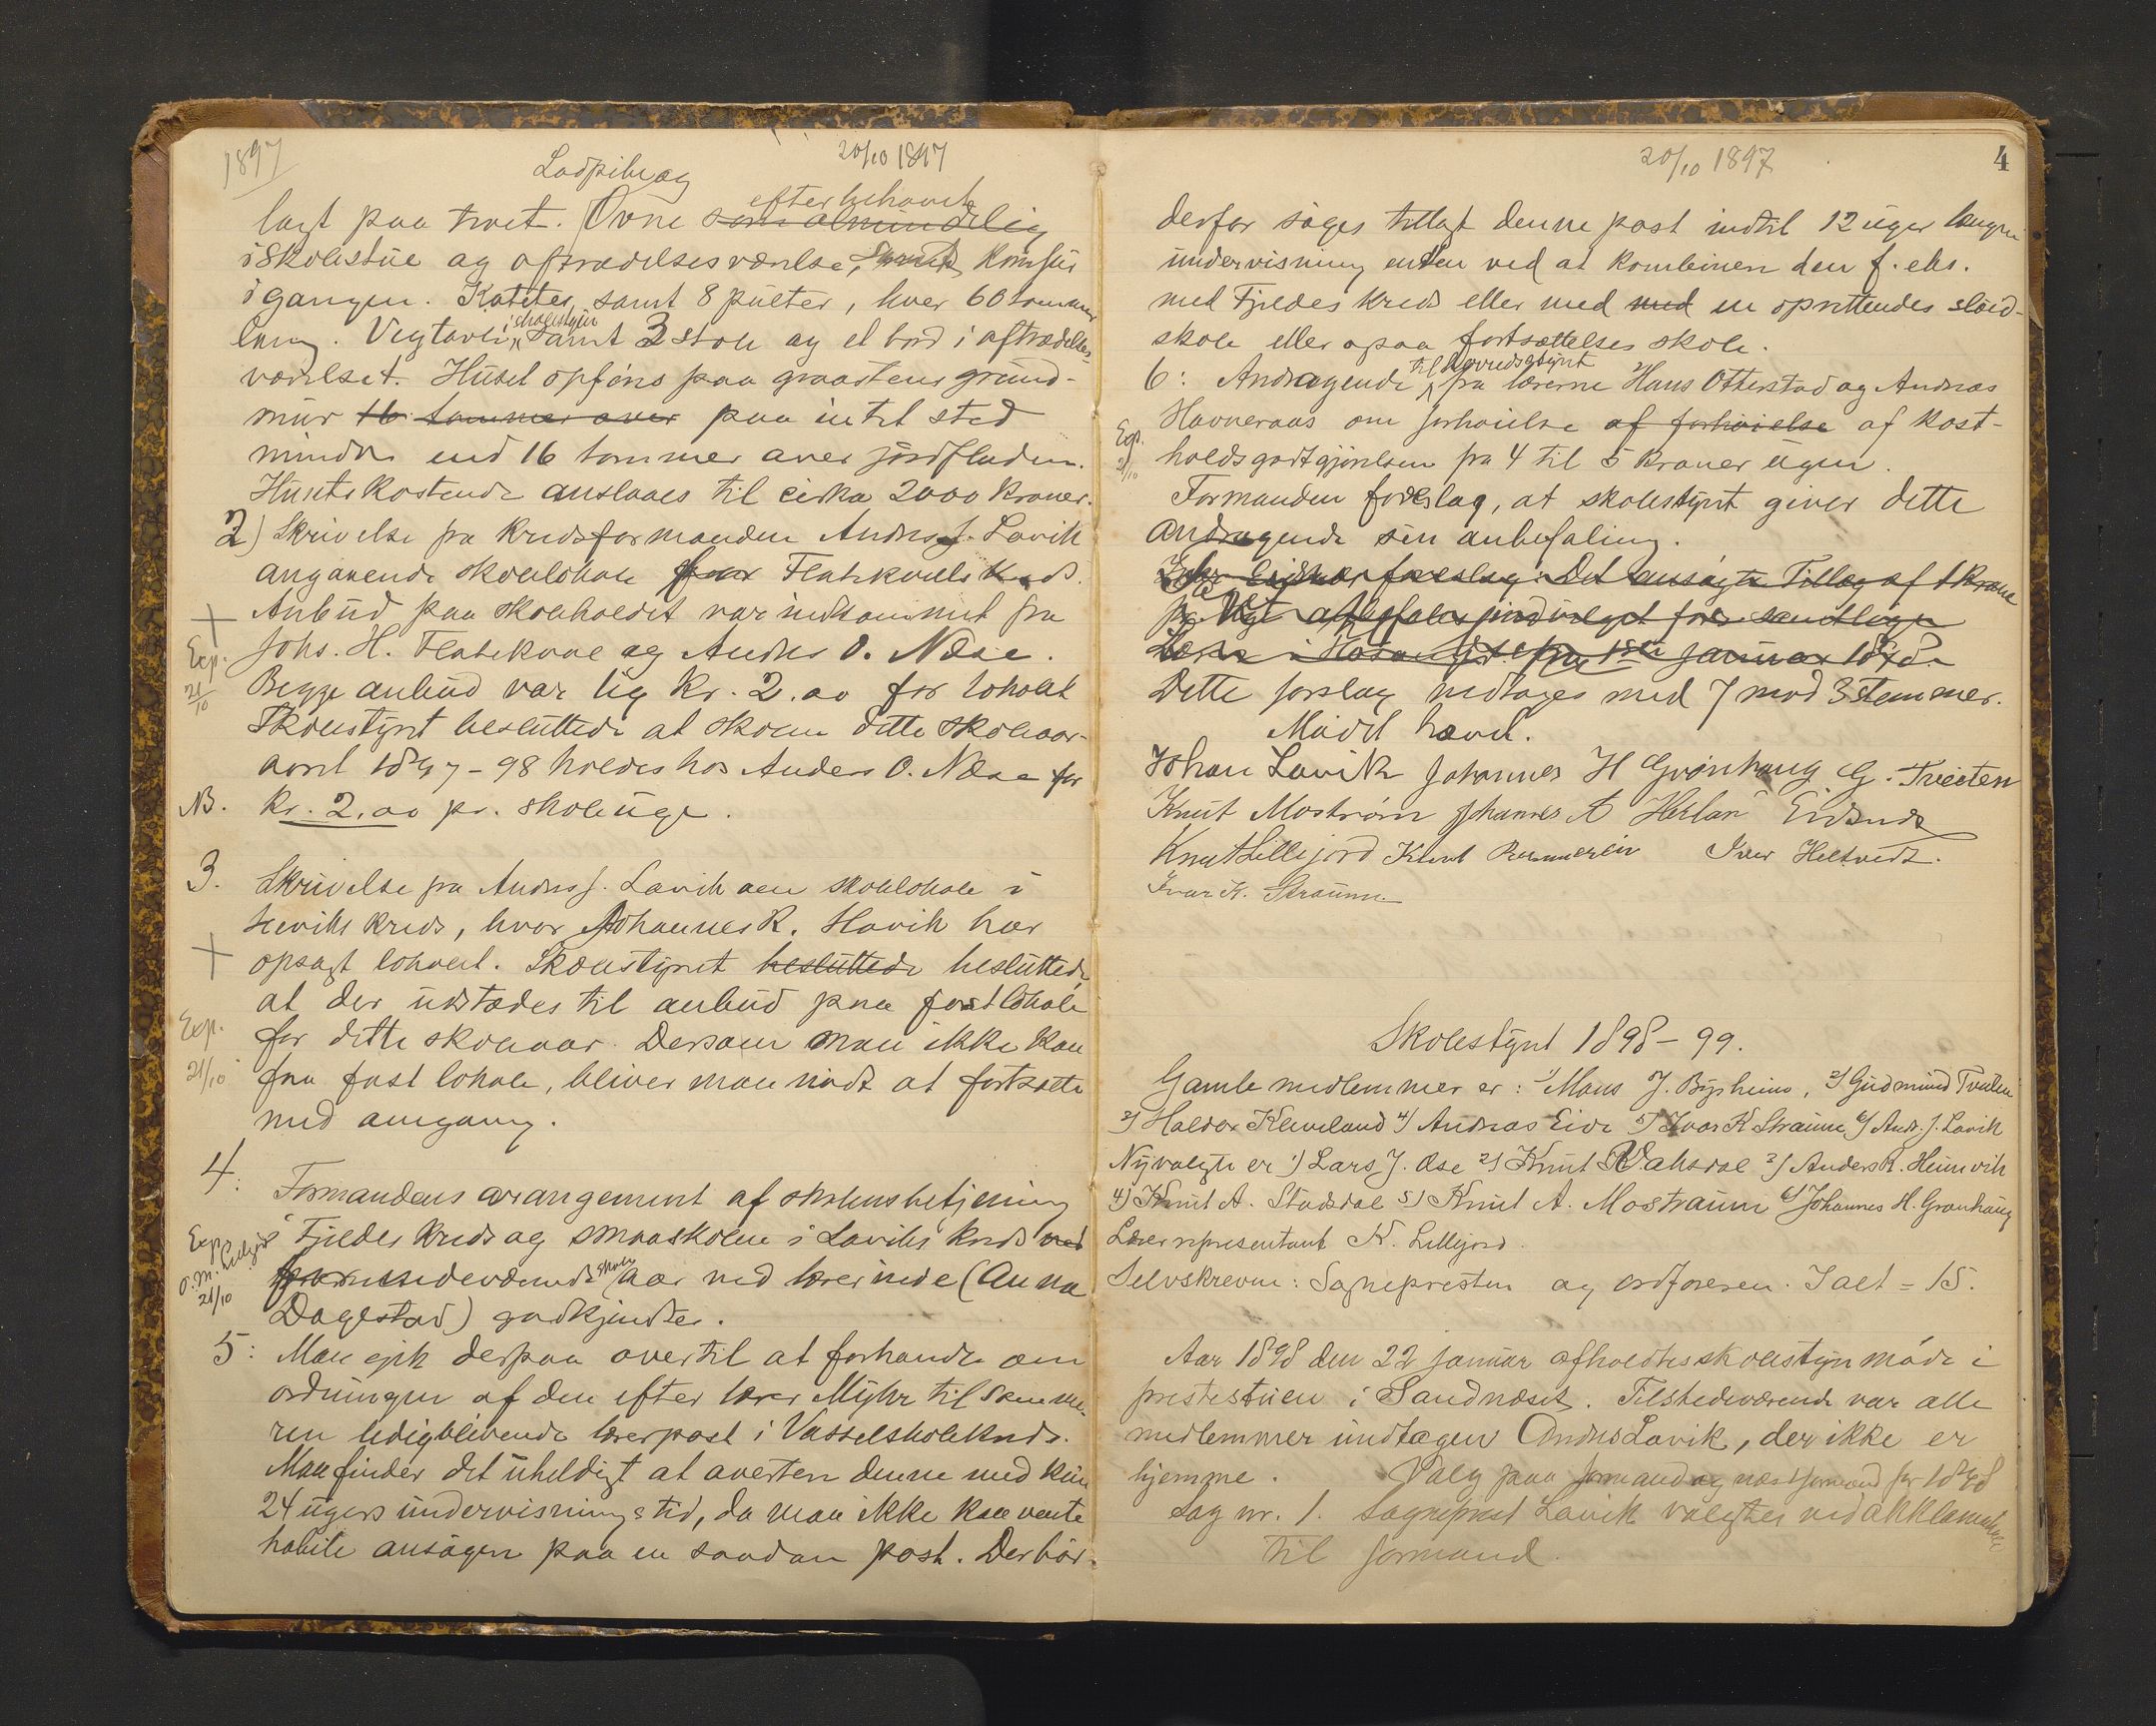 1897
20/10 1897
Ladpibe og
efter behovet
lagt paa tvert. Ovne som almindelig
i skolestue og aftrædelsesværelse, samt komfur
i gangen. Kateter, samt 8 pulter, hver 60 tommer
i skolestuen
lang. Vegtavle, samt 3 stole og et bord i aftrædelses-
værelset. Huset opføres paa graastens grund-
mur 16 tommer over paa intet sted
mindre end 16 tommer over jordfladen.
Husets kostende anslaaes til cirka 2000 kroner.
2) Skrivelse fra kredsformanden Andreas J. Lavik
angaaende skolelokale for Flatekvals Kreds.
Anbud paa skoleholdet var indkommet fra
Exp. 21/10
Johs. H. Flatekval og Anders O. Næse.
Begge anbud var lig Kr. 2.00 for lokalet
Skolestyret besluttede at skolen dette skoleaar
1897-98 holdes hos Anders O. Næse for
NB. Kr. 2.00 pr. skoleuge.
3. Skrivelse fra Andreas J. Lavik om skolelokale i
kreds, hvor Johannes K. Havik har
opsagt lokalet. Skolestyret besluttede besluttede
at der udstædes til anbud paa fast lokale
Exp. 21/10
for dette skoleaar. Dersom man ikke kan
faa fast lokale, bliver man nødt at fortsætte
med omgang.
4: Formandens arangement af skolens betjening
Exp. O. M. Lillejord 21/10
i Fjeldes kreds og smaaskolen i Laviks kreds ved
skole aar ved lærerinde (Anna
Dagestad) godkjendtes.
5: Man gik derpaa over til at forhandle om
ordningen af den efter lærer Myhr til
ledigblivende lærerpost i Vasselskolekreds.
Man finder det uheldigt at avertere denne med kun
24 ugers undervisningstid, da man ikke kan vente
habile ansøgere paa en saadan post. Der bør
20/10 1897
4
derfor søges tillagt denne post indtil 12 uger længere
undervisning enten ved at kombinere den f. eks.
med Fjeldes kreds eller med med en oprettendes sløid-
skole eller ogsaa fortsættelses skole.
til herredsstyret
6: Andragende fra lærerne Hans Otterstad og Andreas
Havneraas om forhøielse af forhøielse af kost-
Exp. 21/10
holdsgodtgjørelsen fra 4 til 5 kroner ugen.
Formanden foreslog, at skolestyret giver dette
andragende sin anbefaling.
foreslog: Det ansøgte Tillæg af 1 krone
pr. Uge anbefales indvilget for samtlige
fra 1ste januar 1898.
Dette forslag vedtages med 7 mod 3 stemmer.
Mødet hævet.
Johan Lavik Johannes H Grønhaug G. Tveiten
Knut Mostrøm Johannes A Herland Eidsnes
Knut Lillejord Knut Iver Heltvedt.
Ivar K. Straume
Skolestyret 1898-99.
Gamle medlemmer er: 1) Mons J. Bysheim, 2) Gudmund Tveiten
3) Haldor Kleiveland 4) Andreas Eide 5) Ivar K Straume 6) Andr. J. Lavik
Nyvalgte er 1) Lars J. Øse 2) Knut Vaksdal 3) Anders R. Heimvik
4) Knut A. Stadsdal 5) Knut A. Mostraum 6) Johannes H. Grønhaug
Lærerrepresentant K. Lillejord.
Selvskrevne: Sogneprésten og ordføreren. Ialt = 15.
Aar 1898 den 22 januar afholdtes skolestyremøde i
prestestuen i Sandnæset. Tilstedeværende var alle
medlemmer undtagen Andreas Lavik, der ikke er
hjemme. Valg paa formand og næstformand for 1898
Sag nr. 1. Sogneprest Lavik valgtes ved akklamation
til formand.